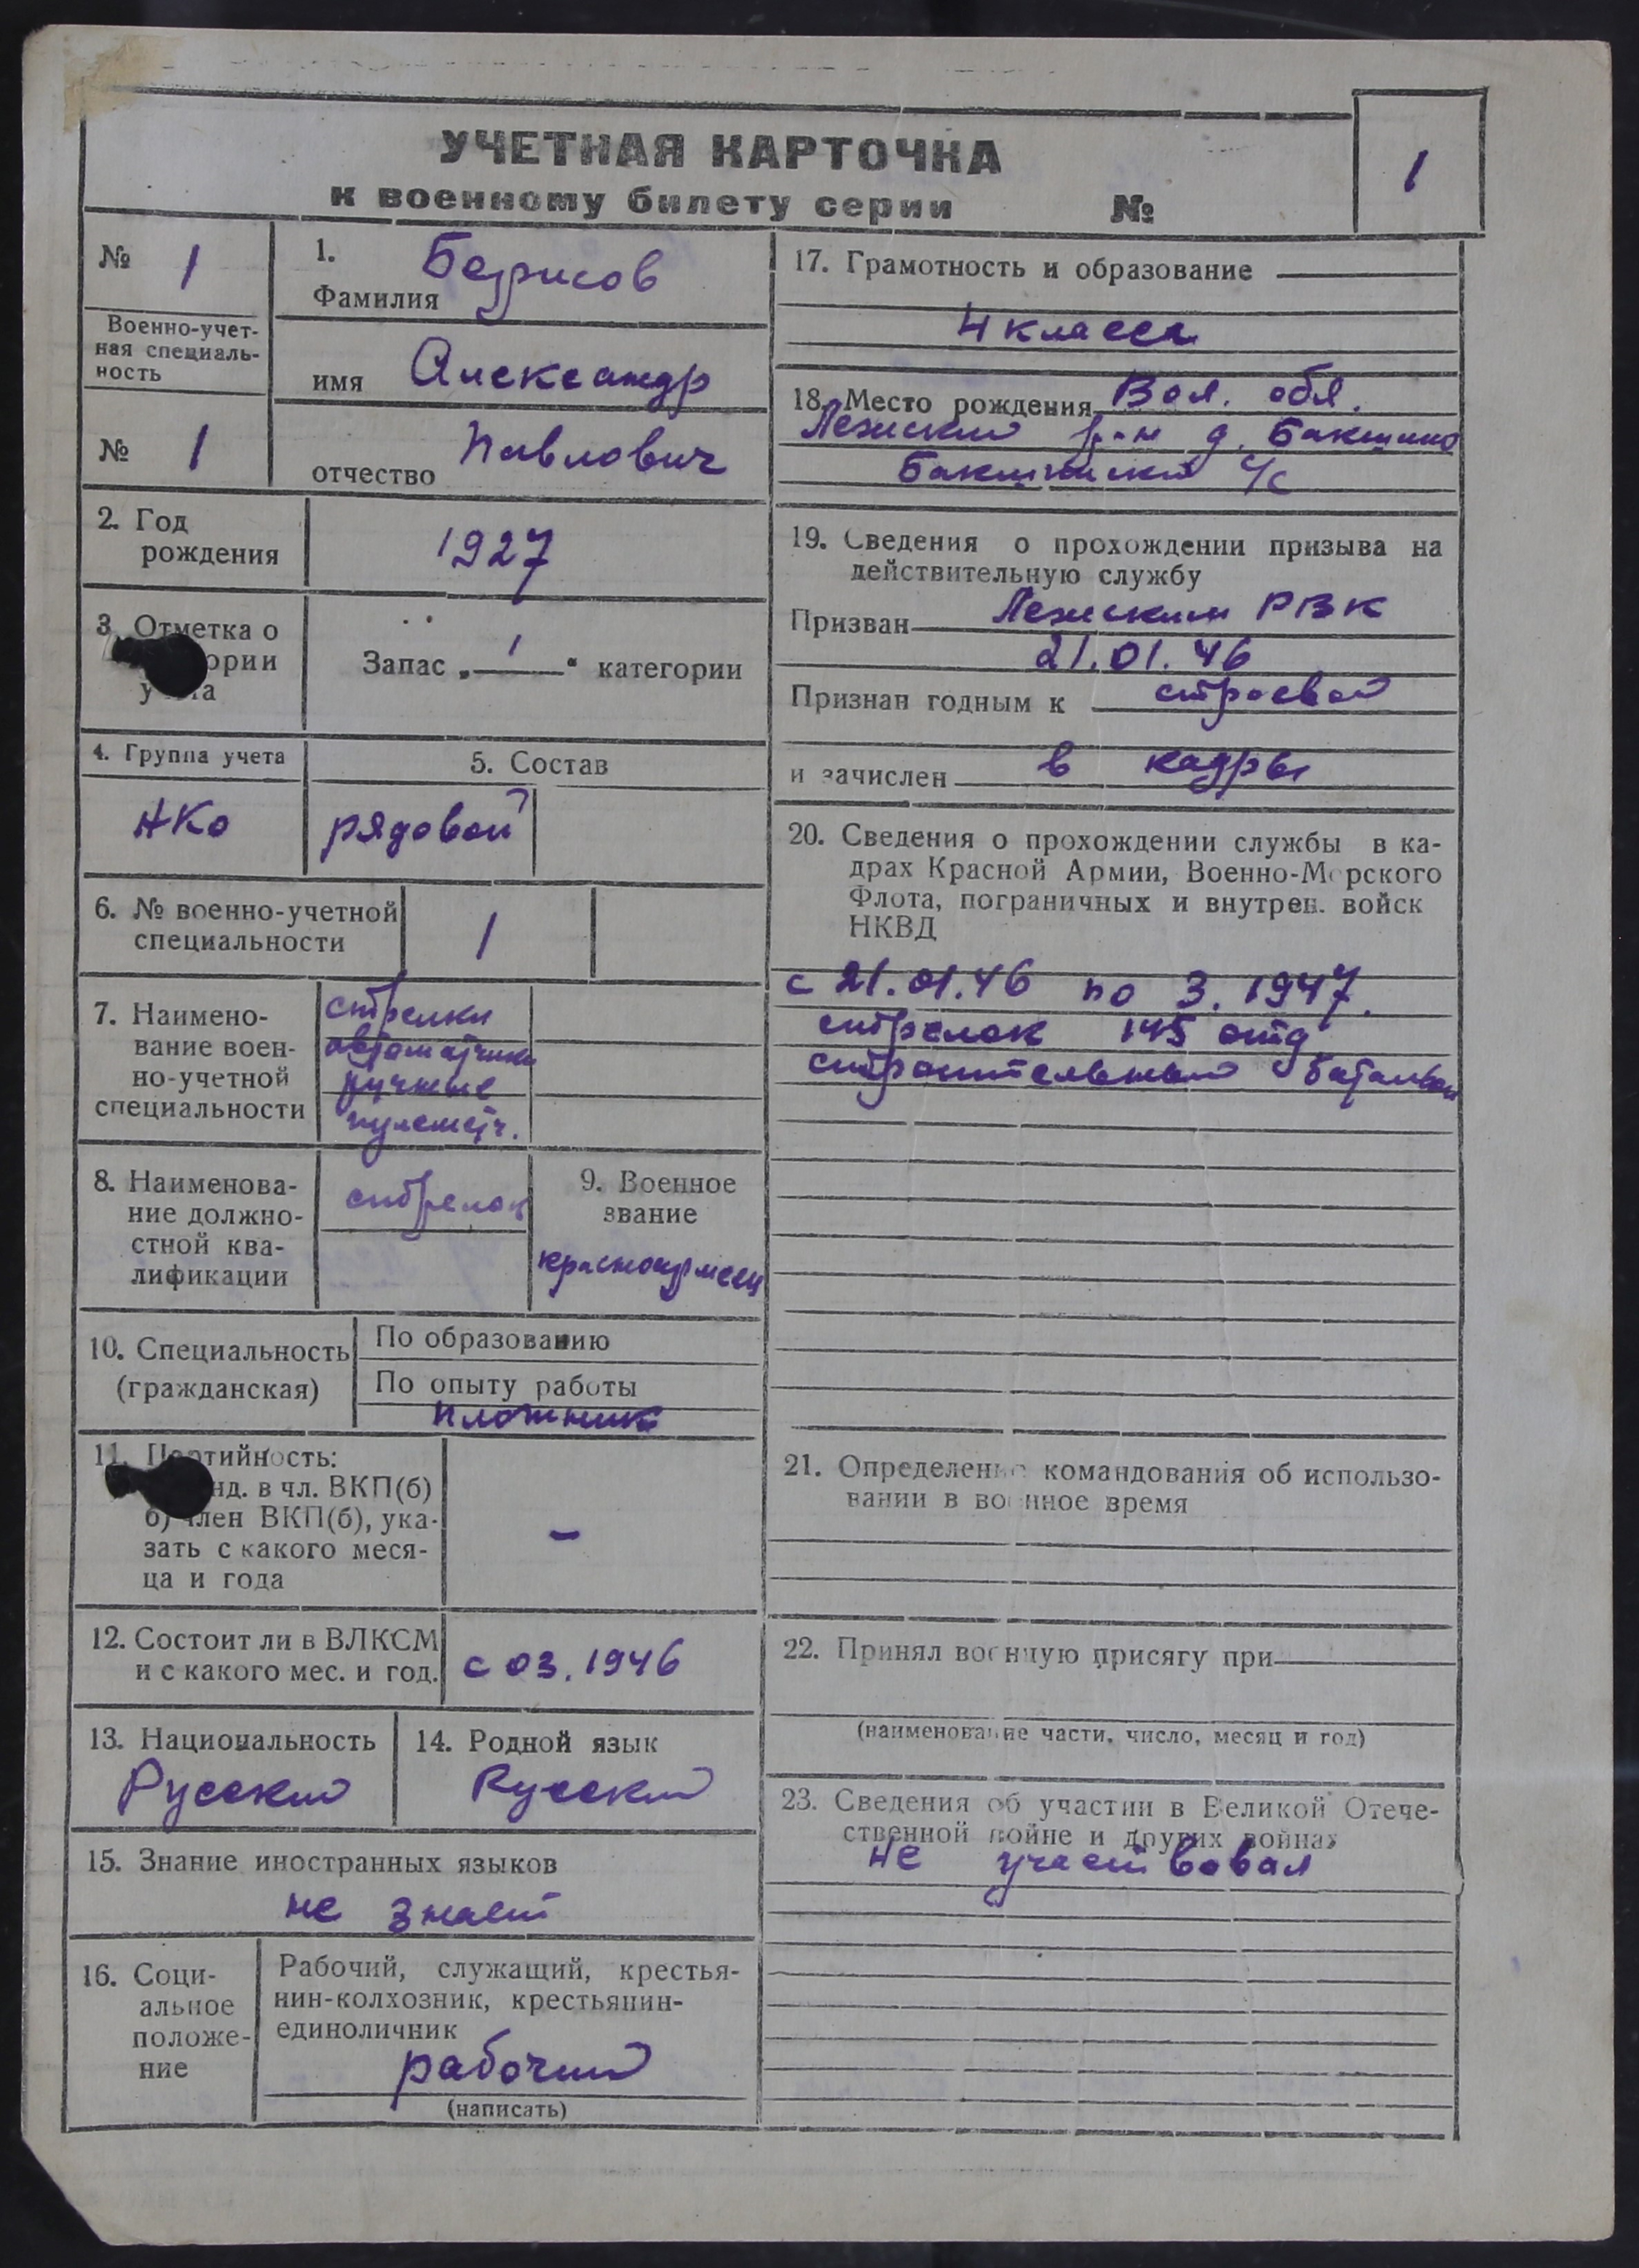 УЧЕТНАЯ КАРТОЧКА
1
к военному билету серии №
№ 1
Военно-учет-
ная специаль-
ность
№ 1
1.
Фамилия
имя Александр
отчество Павлович
2. Год
рождения
1927
3. Отметка о
ории
у та
Запас „ 1 “ категории
4. Группа учета
НКО
5. Состав
рядовой
6. № военно-учетной
специальности
1
7. Наимено-
вание воен-
но-учетной
специальности
стрелки
автоматчики
ручные
пулеметч.
8. Наименова-
ние должно-
стной ква-
лификации
стрелок
9. Военное
звание
красноармеец
10. Специальность
(гражданская)
По образованию
По опыту работы
плотник
11. Партийность:
нд. в чл. ВКП(б)
б) член ВКП(б), ука-
зать с какого меся-
ца и года
-
12. Состоит ли в ВЛКСМ
и с какого мес. и год.
с 03. 1946
13. Национальность
Русский
14. Родной язык
Русский
15. Знание иностранных языков
не знает
16. Соци-
альное
положе-
ние
Рабочий, служащий, крестья-
нин-колхозник, крестьянин-
единоличник
рабочий
(написать)
17. Грамотность и образование
4 класса
18. Место рождения Вол. обл.
Лежский р-н д. Бакшино
Бакшинский с/с
19. Сведения о прохождении призыва на
действительную службу
Призван Лежским РВК
21.01.46
Признан годным к строевой
и зачислен в кадры
20. Сведения о прохождении службы в ка-
драх Красной Армии, Военно-Морского
Флота, пограничных и внутрен. войск
НКВД
с 21.01.46 по 3. 1947.
стрелок 145 отд
строительный батальон
21. Определение командования об использо-
вании в военное время
22. Принял военную присягу при
(наименование части, число, месяц и год)
23. Сведения об участии в Великой Отече-
ственной войне и других войнах
не участвовал